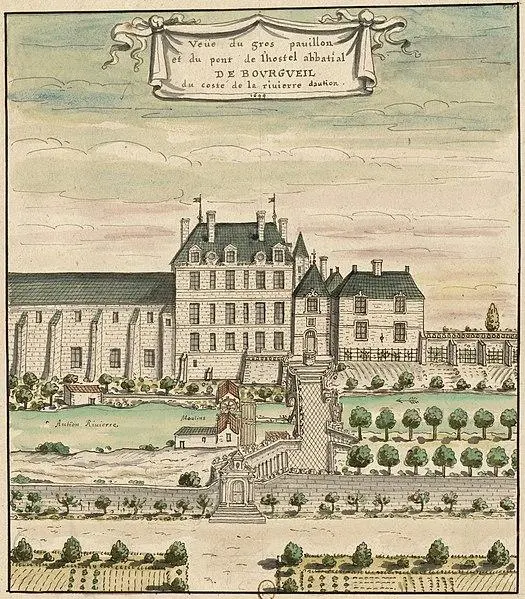 Veüe du gros pauillon
et du pont de lhostel abbatial
DE BOVRGVEIL
du costé de la riuierre daution
1699
Aution Riuierre
Moulins